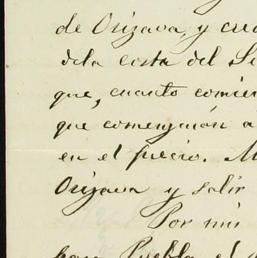 de Orizava, y cre
dela costa del S
que, cuanto comier
que comenzaron a
en el precio. M
Orizava y salir
Por mi
para Puebla el